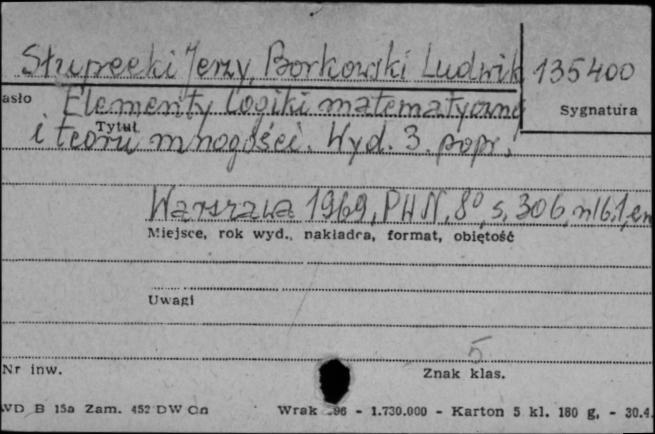 Słupecki Jerzy, Borkowski Ludwik 135400
asło Elementy logiki matematycznej Sygnatura
Tytuł i teorii mnogości. Wyd. 3. popr.
Warszawa 1969, PWN, 8°, s. 306, nlb. 1,
Miejsce, rok wyd., nakładca, format, objętość
Uwagi
5
Nr inw. Znak klas.
WD B 15a Zam. 452 DW Wrak 96 - 1.730.000 - Karton 5 kl. 180 g. - 30.4.